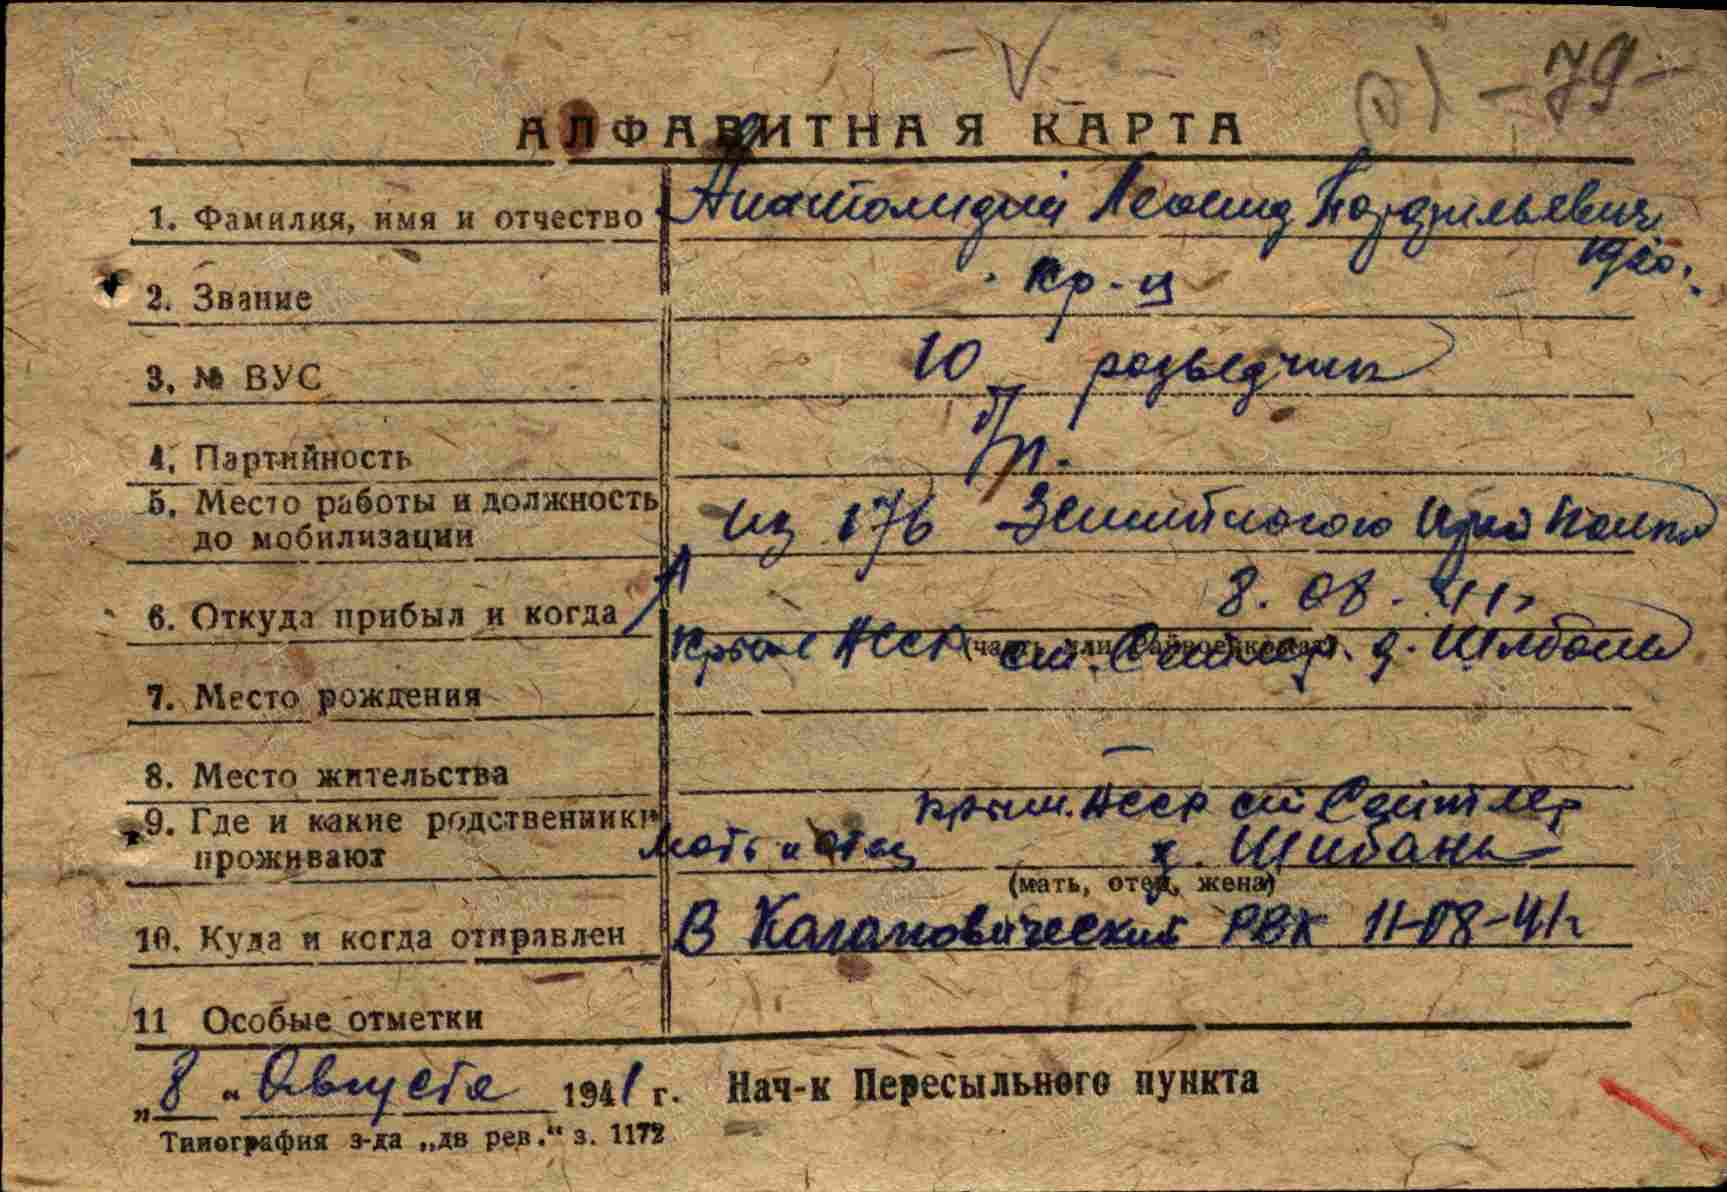 -79-
АЛФАВИТНАЯ КАРТА
1. Фамилия, имя и отчество Леонид
1920.
2. Звание кр-ц
3. № ВУС 10 разведчик
4. Партийность б/п.
5. Место работы и должность
до мобилизации
из 176 Зенитного полка
6. Откуда прибыл и когда 8.08.41г
(часть или райвоенкомат)
Крым АССР ст. Сейтлер. д. Шибань
7. Место рождения
8. Место жительства –
9. Где и какие родственники
проживают
Крым. АССР ст Сейтлер
мать и отец д. Шибань
(мать, отец, жена)
10. Куда и когда отправлен В Кагановический РВК 11-08-41г
11 Особые отметки
„8“ Августа 1941 г. Нач-к Пересыльного пункта
Типография з-да „дв рев.“ з. 1172